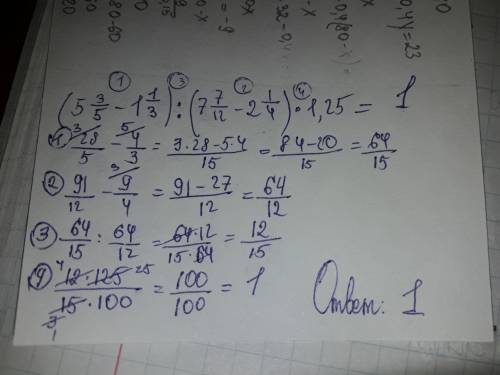 (5 3/5 − 1 1/3) : (7 7/12 − 2 1/4) · 1,25 = 1
① 28/5 − 4/3 = 3·28−5·4/15 = 84−20/15 = 64/15
② 91/12 − 9/4 = 91−27/12 = 64/12
③ 64/15 : 64/12 = 64·12/15·64 = 12/15
④ 12·125/15·100 = 100/100 = 1
Ответ: 1
0,4y=23